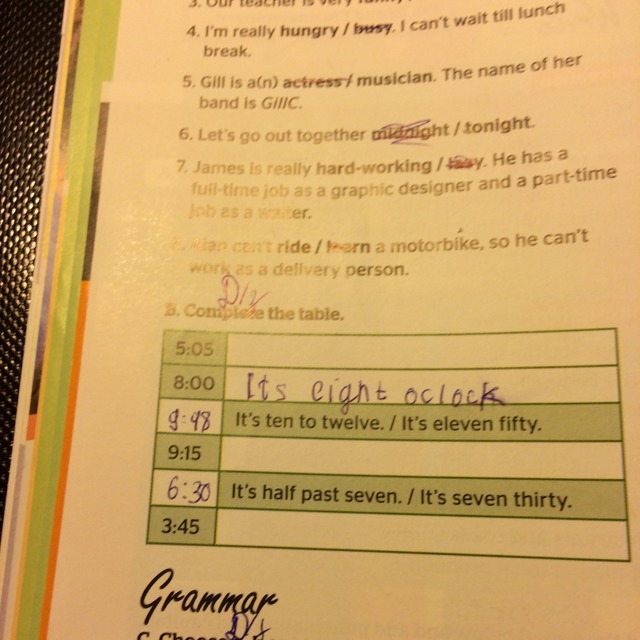 3. Our teacher is very
4. I'm really hungry / busy. I can't wait till lunch
break.
5. Gill is a(n) actress / musician. The name of her
band is GillC.
6. Let's go out together midnight / tonight.
7. James is really hard-working / lazy. He has a
full-time job as a graphic designer and a part-time
job as a waiter.
Kian can't ride / learn a motorbike, so he can't
work as a delivery person.
B. Complete the table.
5:05
8:00 Its eight oclock
9:48 It's ten to twelve. / It's eleven fifty.
9:15
6:30 It's half past seven. / It's seven thirty.
3:45
Grammar